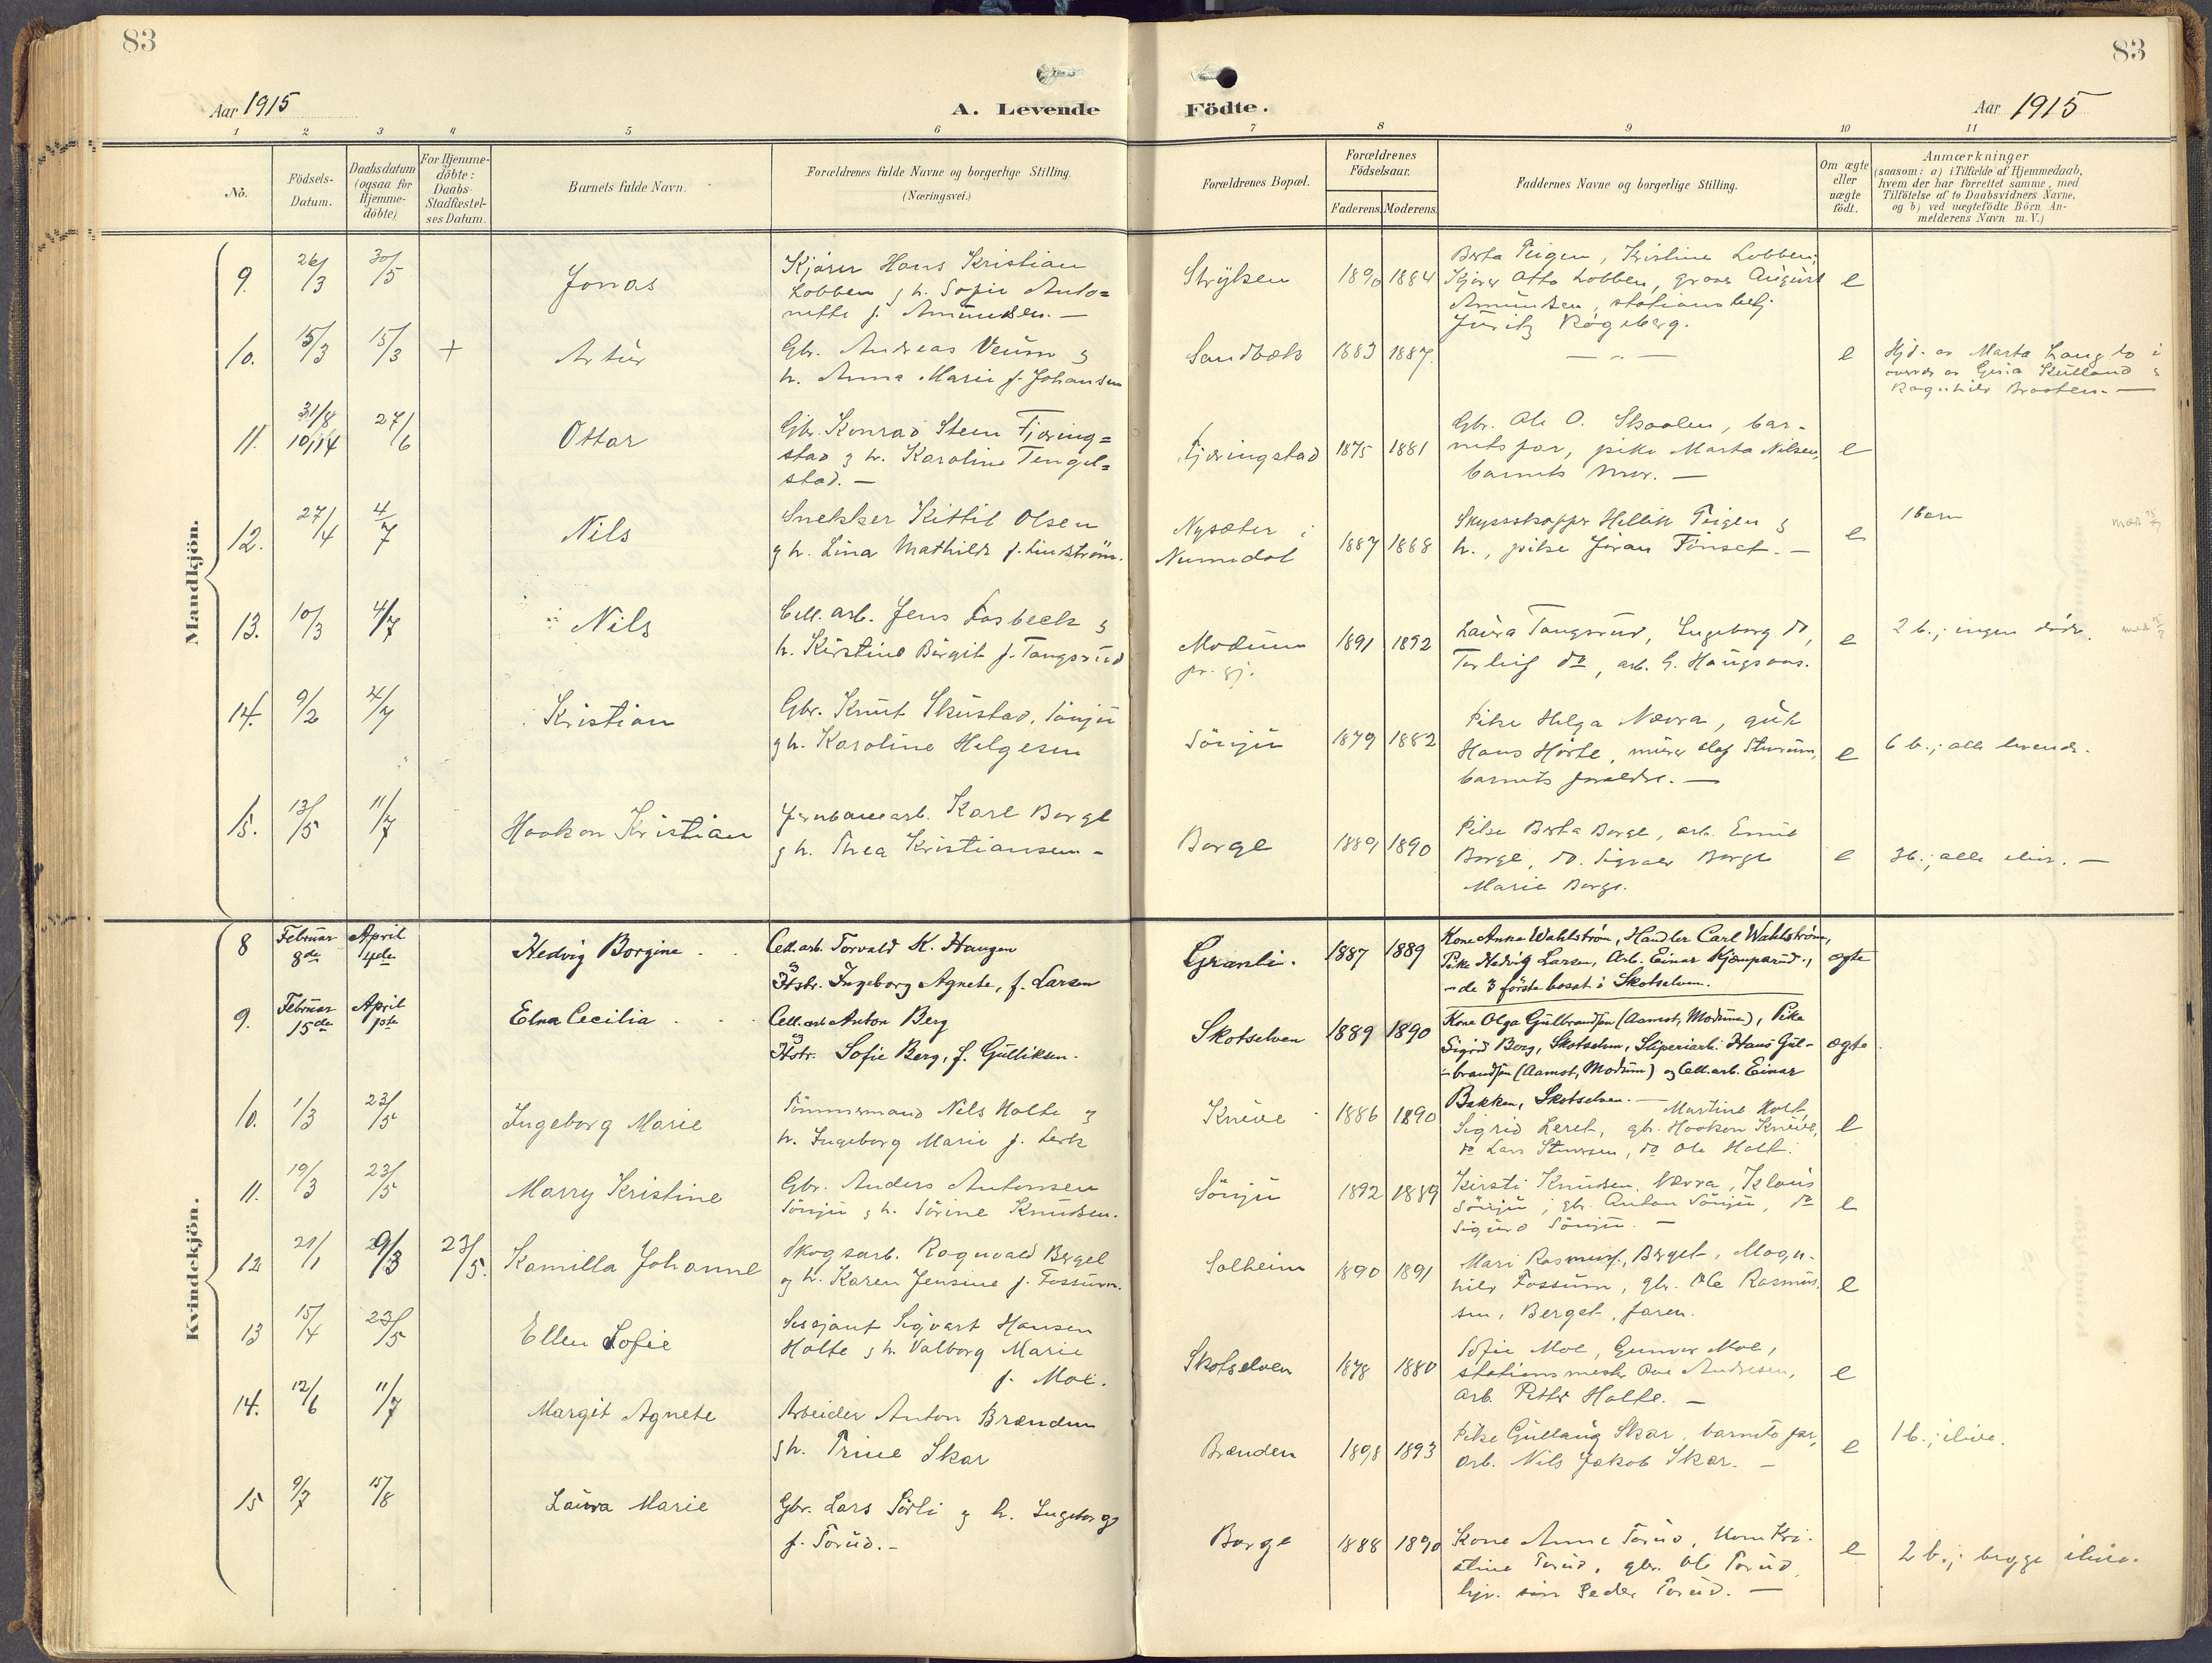 83
83
Aar 1915
A. Levende
Födte.
Aar 1915
1 2 3 4 5 6 7 8 9 10 11
No.
Födsels-
Datum.
Daabsdatum
(ogsaa for
Hjemme-
döbte)
For Hjemme-
döbte:
Daabs-
Stadfæstel-
ses Datum.
Barnets fulde Navn.
Forældrenes fulde Navne og borgerlige Stilling.
(Næringsvei.)
Forældrenes Bopæl.
Forældrenes
Födselsaar.
Faderens. Moderens.
Faddernes Navne og borgerlige Stilling.
Om ægte
eller
uægte
födt.
Anmærkninger
(saasom: a) i Tilfælde af Hjemmedaab,
hvem der har forrettet samme, med
Tilföielse af to Daabsvidners Navne,
og b) ved uægtefödte Börn An-
melderens Navn m. V.)
Mandkjön.
9. 26/3 30/5 Jonas
Kjører Hans Kristian
Lobben g h. Sofie Anto=
nette f. Amundsen. —
1890 1884
Berta Teigen, Kristine Lobben,
Kjører Otto Lobben, August
Amundsen, stations
Rögeberg.
e
10. 15/3 15/3 + Artur
Gbr. Andreas Veum g
h. Anna Marie f. Johansen
Sandbæk 1883 1887.
— „ —
e
Hjd. av Marta
Ragnhild Braaten. —
11. 31/8 10/14 27/6 Ottar
Gbr. Konrad Steen Fjæring=
stad g h. Karoline Tengel=
stad. —
Fjæringstad 1875 1881
Gbr. Ole O. Skaalen, bar-
nets far, pike Marta Nilsen,
barnets mor. —
e
12. 27/4 4/7 Nils
Snekker Kittil Olsen
g h. Lina Mathilde f. Lindström.
Nysæter i
Numedal
1887 1888
Skyssskaffer Hellik Teigen g
h., pike Jöran Tönset. —
e
1 barn
13. 10/3 4/7 Nils
Cell. arb. Jens Fosbeck g
h. Kirstine Birgit f. Tangsrud
Modum
pr. gj.
1891 1892
Laura Tangsrud, Ingeborg do,
Torleif do, arb. G. Haugsaas.
e
2 b.; ingen döde.
14. 9/2 4/7 Kristian
Gbr. Knut Skustad, Sönju
g h. Karoline Helgesen
Sönju 1879 1882
Pike Helga Nævra, gut
Hans Hörte, murer Olaf
barnets forældre. —
e
6 b.; alle levende.
15. 13/5 11/7 Haakon Kristian
Jernbanearb. Karl Borge
g h. Thea Kristiansen -
Borge 1889 1890
Pike Berta Borge, arb. Emil
Borge, do. Sigvald Borge
Marie Borge.
e
3 b.; alle ilive. —
Kvindekjön.
8 Februar 8de April 4de Hedvig Borgine
Cell. arb. Torvald K. Haugen
og
Hstr. Ingeborg Agnete, f. Larsen
Granli. 1887 1889
Kone Anna Wahlström, Handler Carl Wahlström,
Pike Hedvig Larsen, Arb. Einar Kjemperud.,
- de 3 förste bosat i Skotselven.
ægte
9. Februar 15de April 1ste Elna Cecilia
Cell. arb Anton Berg
og
Hstr. Sofie Berg, f. Gulliksen.
Skotselven 1889 1890
Kone Olga Gulbrandsen (Aamot, Modum), Pike
Sigrid Berg, Skotselven, Sliperiarb. Hans Gul-
brandsen (Aamot, Modum) og Cell. arb. Einar
Bakken, Skotselven. —
ægte
10. 1/3 23/5 Ingeborg Marie
Tömmermand Nils Holte g
h. Ingeborg Marie f.
Knive 1886 1890
Martine
Sigrid, gbr. Haakon Knive,
do Lars, do Ole Holt.
e
11. 19/3 23/5 Marry Kristine
Gbr. Anders Antonsen
Sönju g h. Sörine Knudsen.
Sönju 1892 1889
Kirsti Knudsen Nævra, Klaus
Sönju, gbr. Anton Sönju, do
Sigurd Sönju. —
e
12 21/1 9/3 23/5. Kamilla Johanne
Skogsarb. Ragnvald Berget
og h. Karen Jensine f. Fossum.
Solheim 1890 1891
Mari Rasmus., Berget, Magn-
hild Fossum, gbr. Ole Rasmus.
sen, Berget, faren.
e
13 15/4 23/5 Ellen Sofie
Sersjant Sigvart Hansen
Holte g h. Valborg Marie
f. Moe.
Skotselven 1878 1880
Sofie Moe, Gunvor Moe,
stationsmester Ove Andresen,
arb. Petter Holte. —
e
14. 12/6 11/7 Margit Agnete
Arbeider Anton Brænden
g h. Trine Skar
Brænden 1898 1893
Pike Gullaug Skar, barnets far,
arb. Nils Jakob Skar. —
e
1 b.; ilive.
15 9/7 15/8 Laura Marie
Gbr. Lars Sörli g h. Ingeborg
f. Torud. -
Borge 1888 1890
Kone Anne Torud, Kri-
stine Torud, gbr. Ole Torud,
sön Peder Torud. —
e
2 b.; begge ilive.